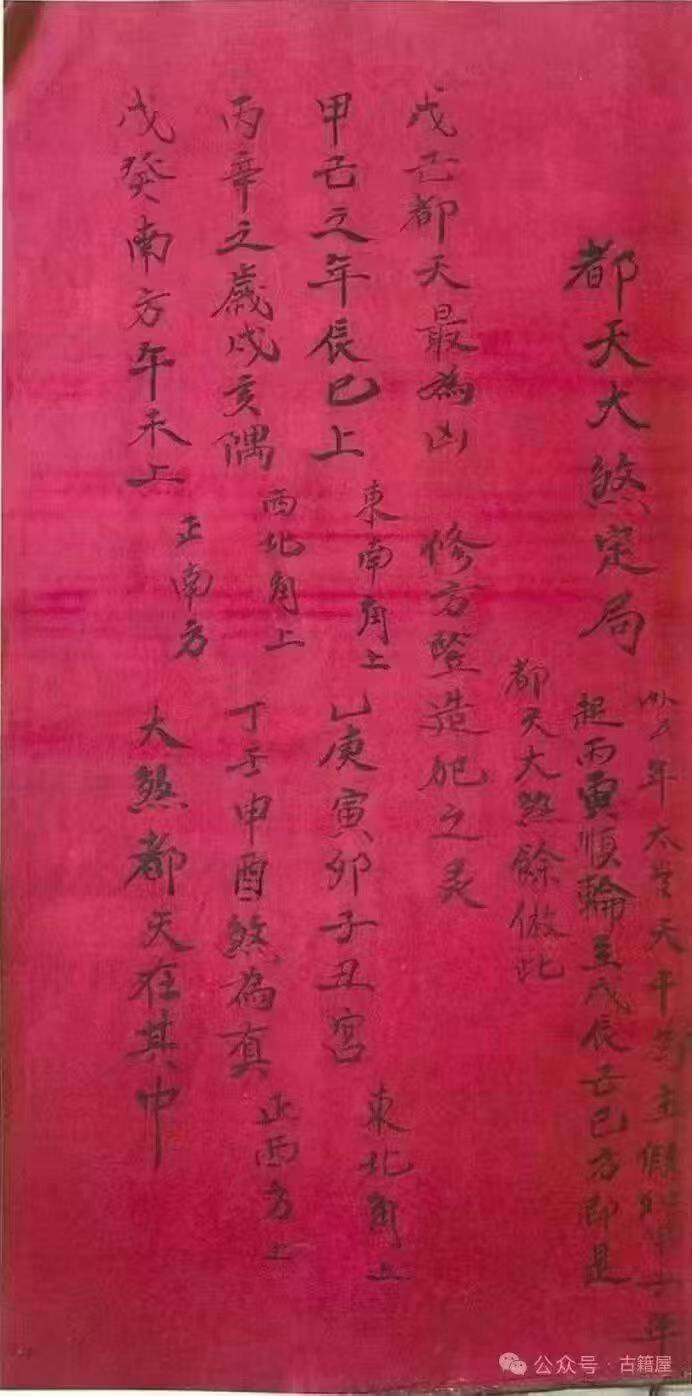 都天大煞定局
年太歲天干為主假如甲子年
起丙寅順輪至戊辰己巳方即是
都天大煞餘倣此
戊己都天最為凶 修方豎造犯之灾
甲己之年辰巳上 東南角上 乙庚寅卯子丑宮 東北角上
丙辛之歲戌亥隅 西北角上 丁壬申酉煞為真 正西方上
戊癸南方午未上 正南方 大煞都天在其中
公众号·古籍屋